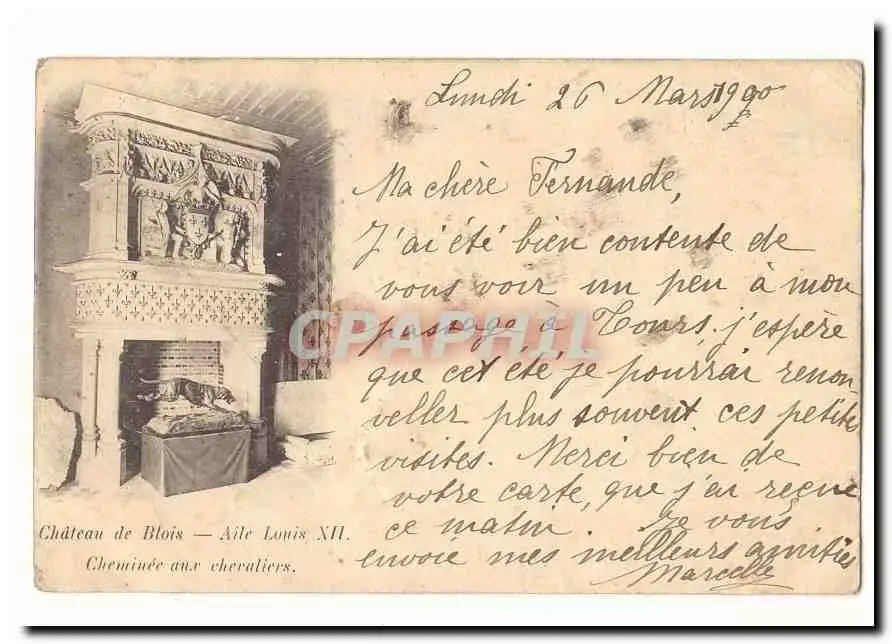 Lundi 26 Mars 1900
Ma chère Fernande,
J'ai été bien contente de
vous voir un peu à mon
passage à Tours. j'espère
que cet été, je pourrai renou
veller plus souvent ces petites
visites. Merci bien de
votre carte, que j'ai reçue
ce matin. Je vous
envoie mes meilleurs amitiés
Marcelle
Château de Blois — Aile Louis XII.
Cheminée aux chevaliers.
CPAPHIL